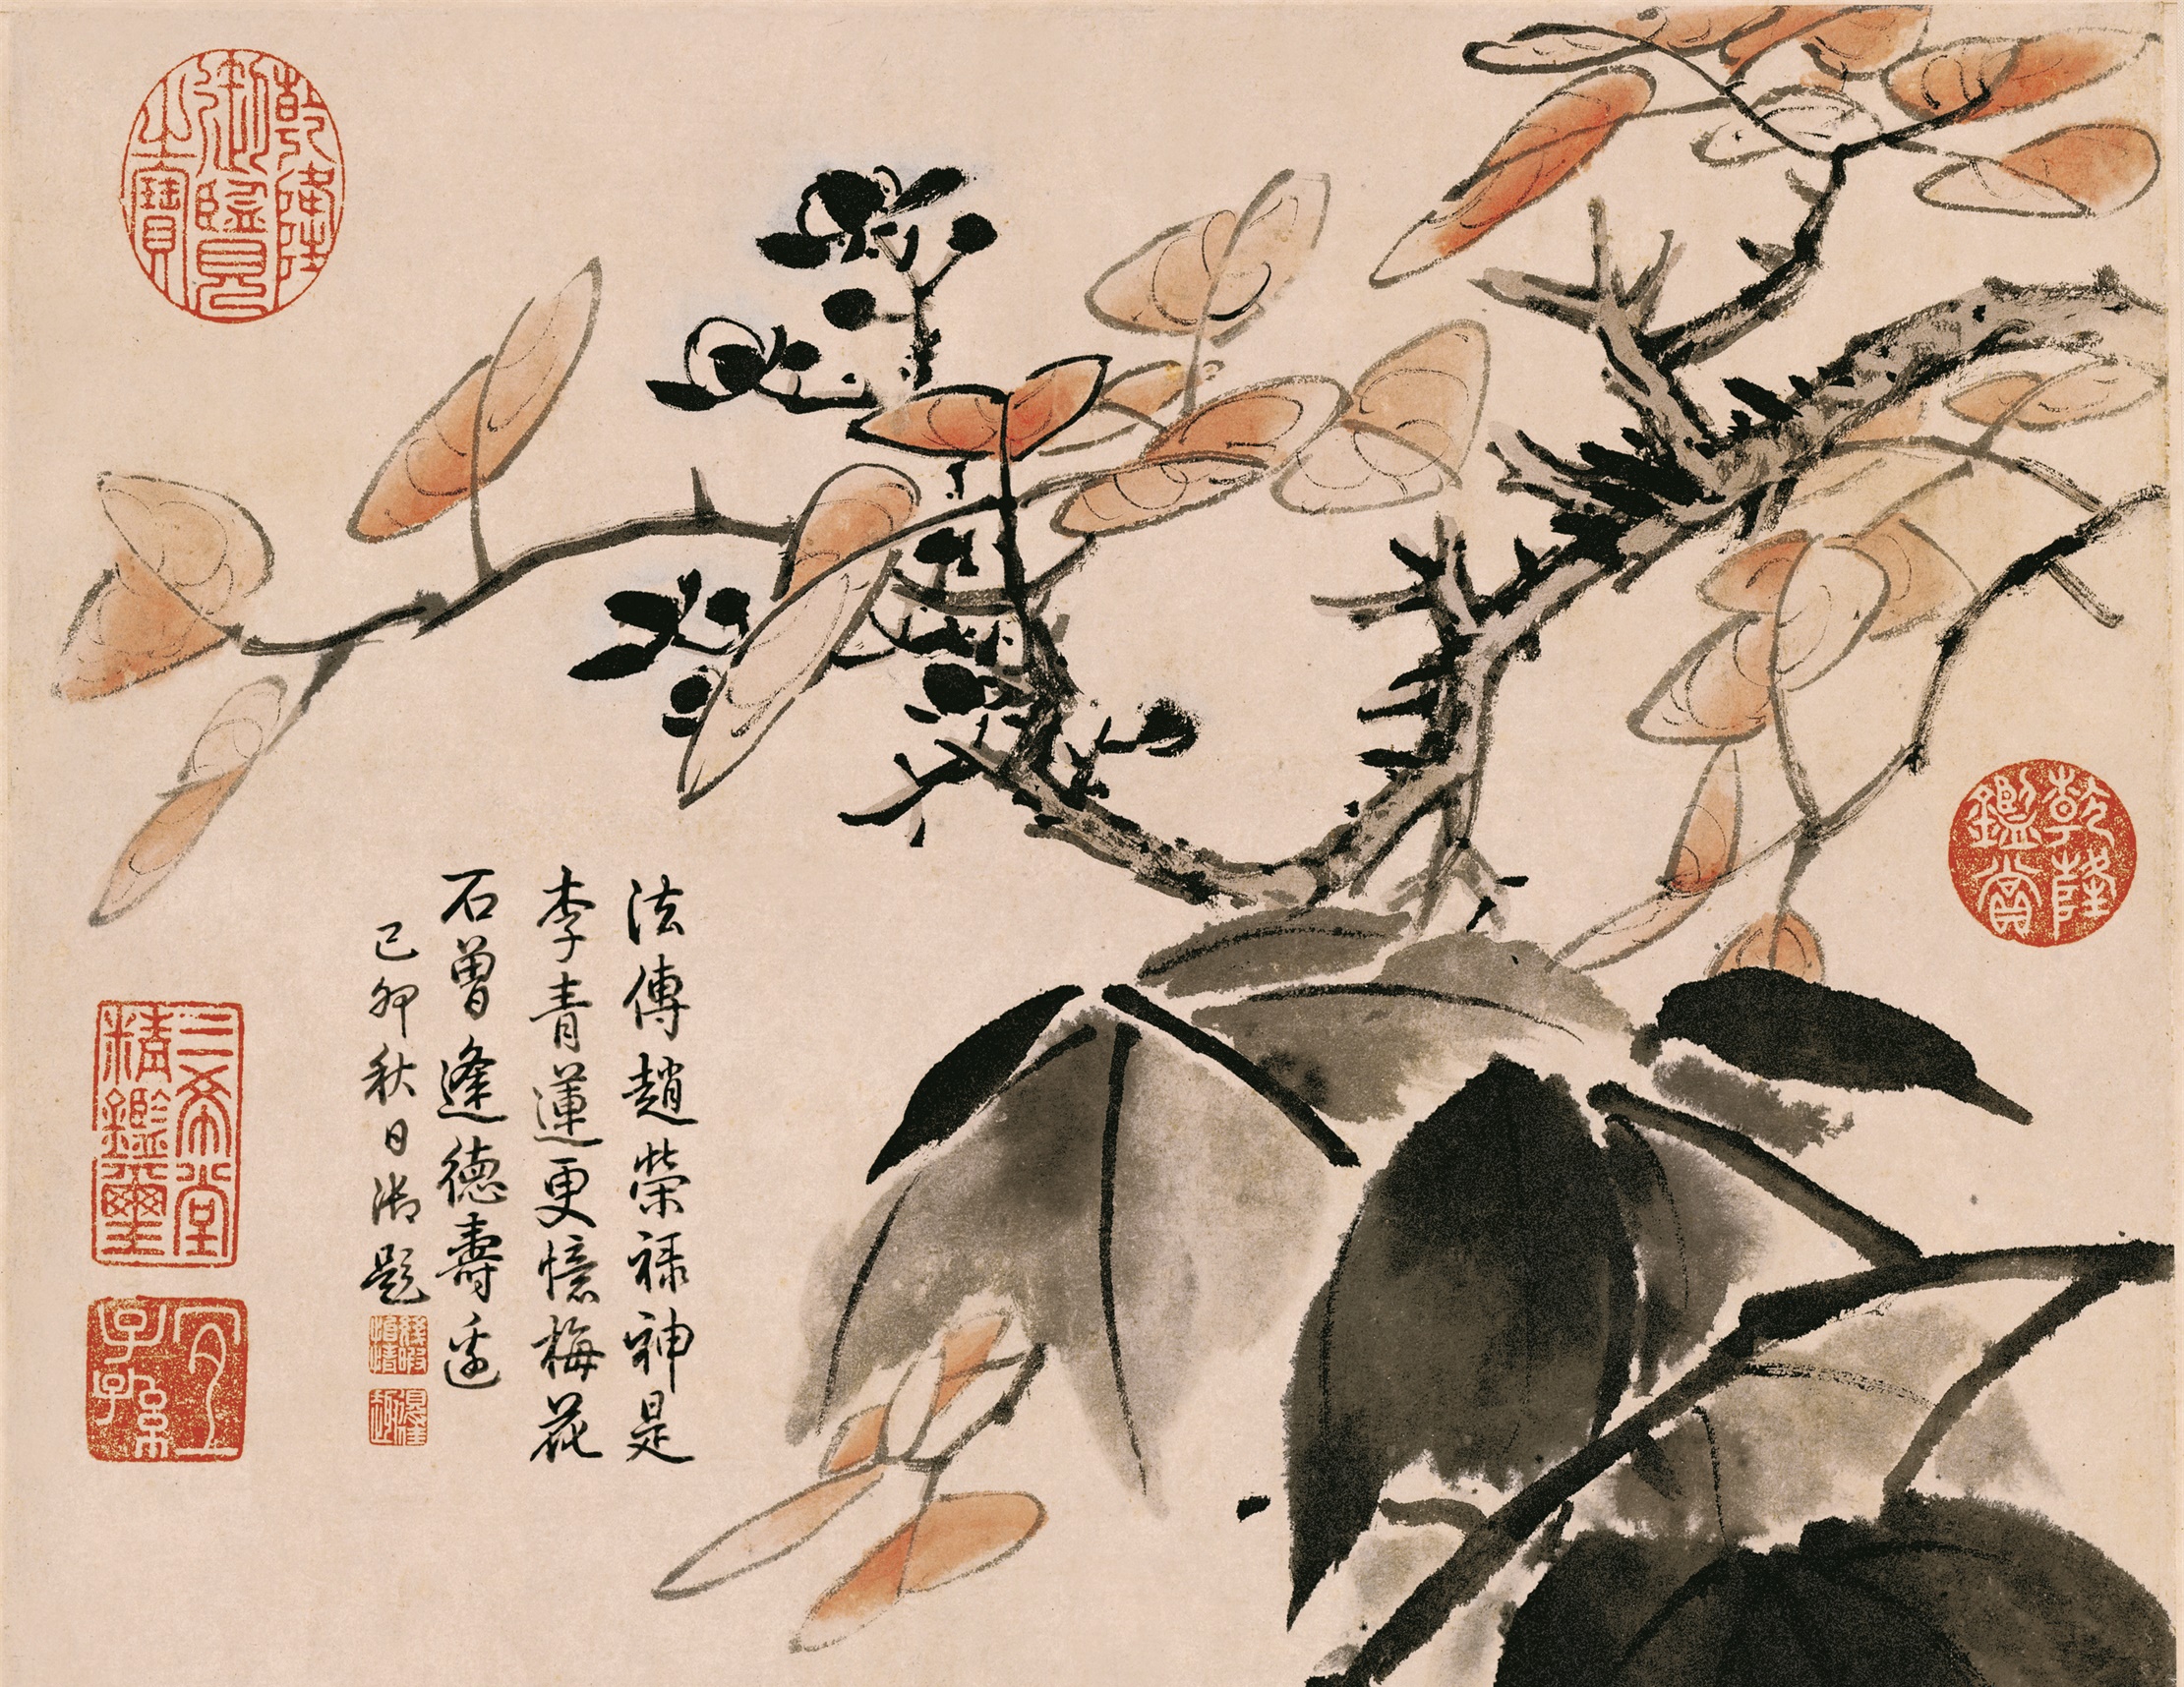 乾隆御覽之寶
乾隆鑑賞
法傳趙榮祿神是
李青蓮更憶梅花
石曾逢德壽邊
己卯秋日御題
幾暇怡情
得佳趣
三希堂精鑑璽
宜子孫